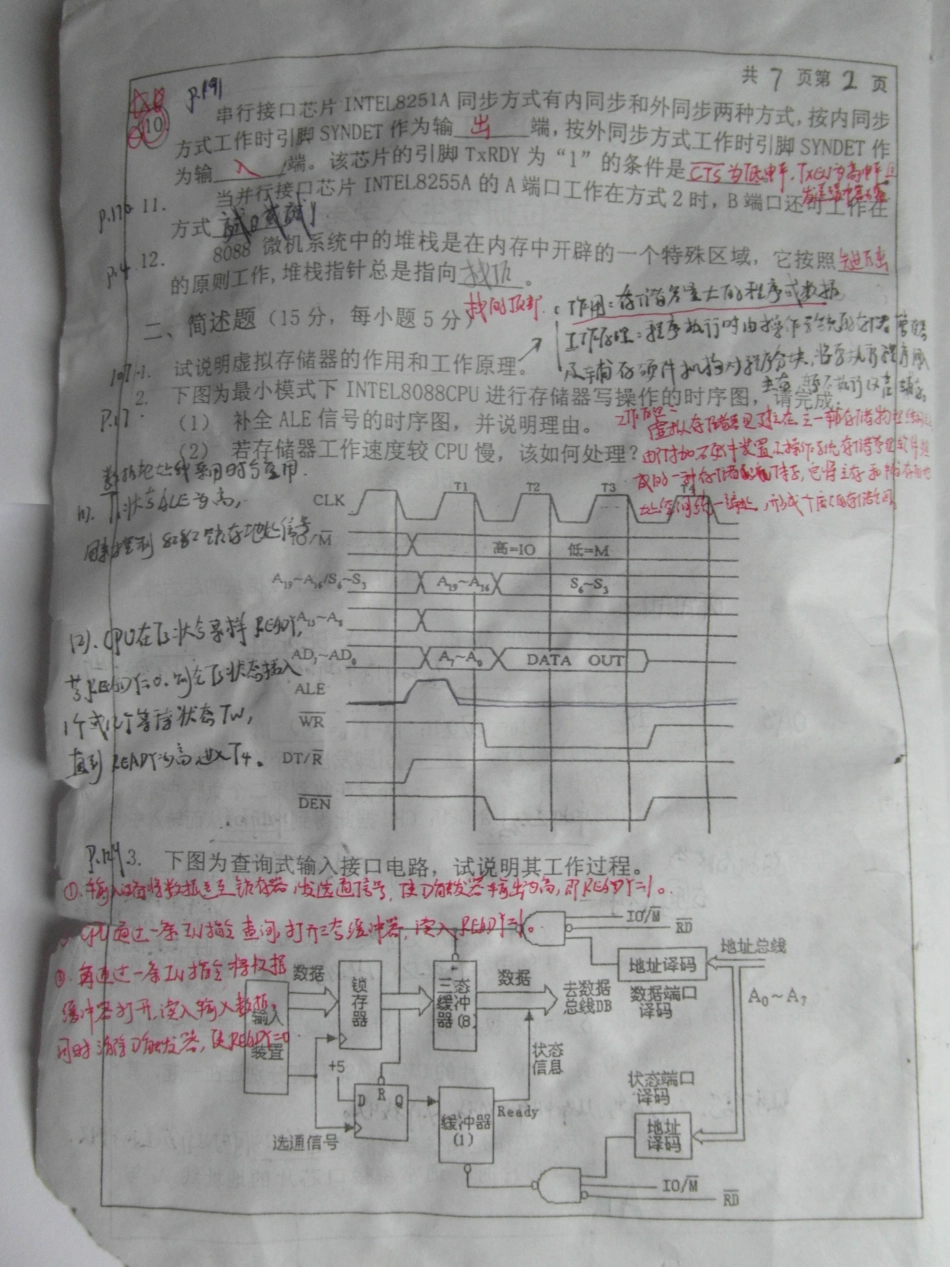 共 7 页第 2 页
P.191
10. 串行接口芯片 INTEL8251A 同步方式有内同步和外同步两种方式,按内同步
方式工作时引脚 SYNDET 作为输 出 端,按外同步方式工作时引脚 SYNDET 作
为输 入 端。该芯片的引脚 TxRDY 为“1”的条件是 CTS为低电平、TxEN为高电平且
P.170 11. 当并行接口芯片 INTEL8255A 的 A 端口工作在方式 2 时,B 端口还可工作在
方式
P.4 12. 8088 微机系统中的堆栈是在内存中开辟的一个特殊区域,它按照 先进后出
的原则工作,堆栈指针总是指向 栈顶 。
栈的顶部
二、简述题(15 分,每小题 5 分)
作用:存储容量大的程序或数据
107. 1. 试说明虚拟存储器的作用和工作原理。
工作原理:程序执行时由操作系统的存储管理
2. 下图为最小模式下 INTEL8088CPU 进行存储器写操作的时序图,请完成:
P.17
(1) 补全 ALE 信号的时序图,并说明理由。
(2) 若存储器工作速度较 CPU 慢,该如何处理?
工作原理:
虚拟存储器是建立在主—辅存储物理结构
数据地址线采用时分复用
(1). T1状态ALE为高,
用来控制8282锁存地址信号
CLK T1 T2 T3 T4
IO/M̅ 高=IO 低=M
A19~A16/S6~S3 A19~A16 S6~S3
A15~A8
AD7~AD0 A7~A0 DATA OUT
ALE
W̅R̅
DT/R̅
D̅E̅N̅
(2). CPU在T3状态采样READY,
若READY=0,则在T3状态插入
1个或几个等待状态Tw,
直到READY为高进入T4。
P.129 3. 下图为查询式输入接口电路,试说明其工作过程。
①. 输入设备将数据送至锁存器,发选通信号,使D触发器输出为高,即READY=1。
CPU通过一条IN指令查询,打开三态缓冲器,读入READY=1。
③ 再通过一条IN指令将数据
缓冲器打开,读入输入数据,
同时清除D触发器,使READY=0
IO/M̅
R̅D̅
地址译码
地址总线
数据端口
译码
A0~A7
输入
装置
数据
锁存器
三态缓冲器(8)
数据
去数据
总线DB
状态
信息
状态端口
译码
+5
D R Q
缓冲器
(1)
Ready
地址
译码
选通信号
IO/M̅
R̅D̅